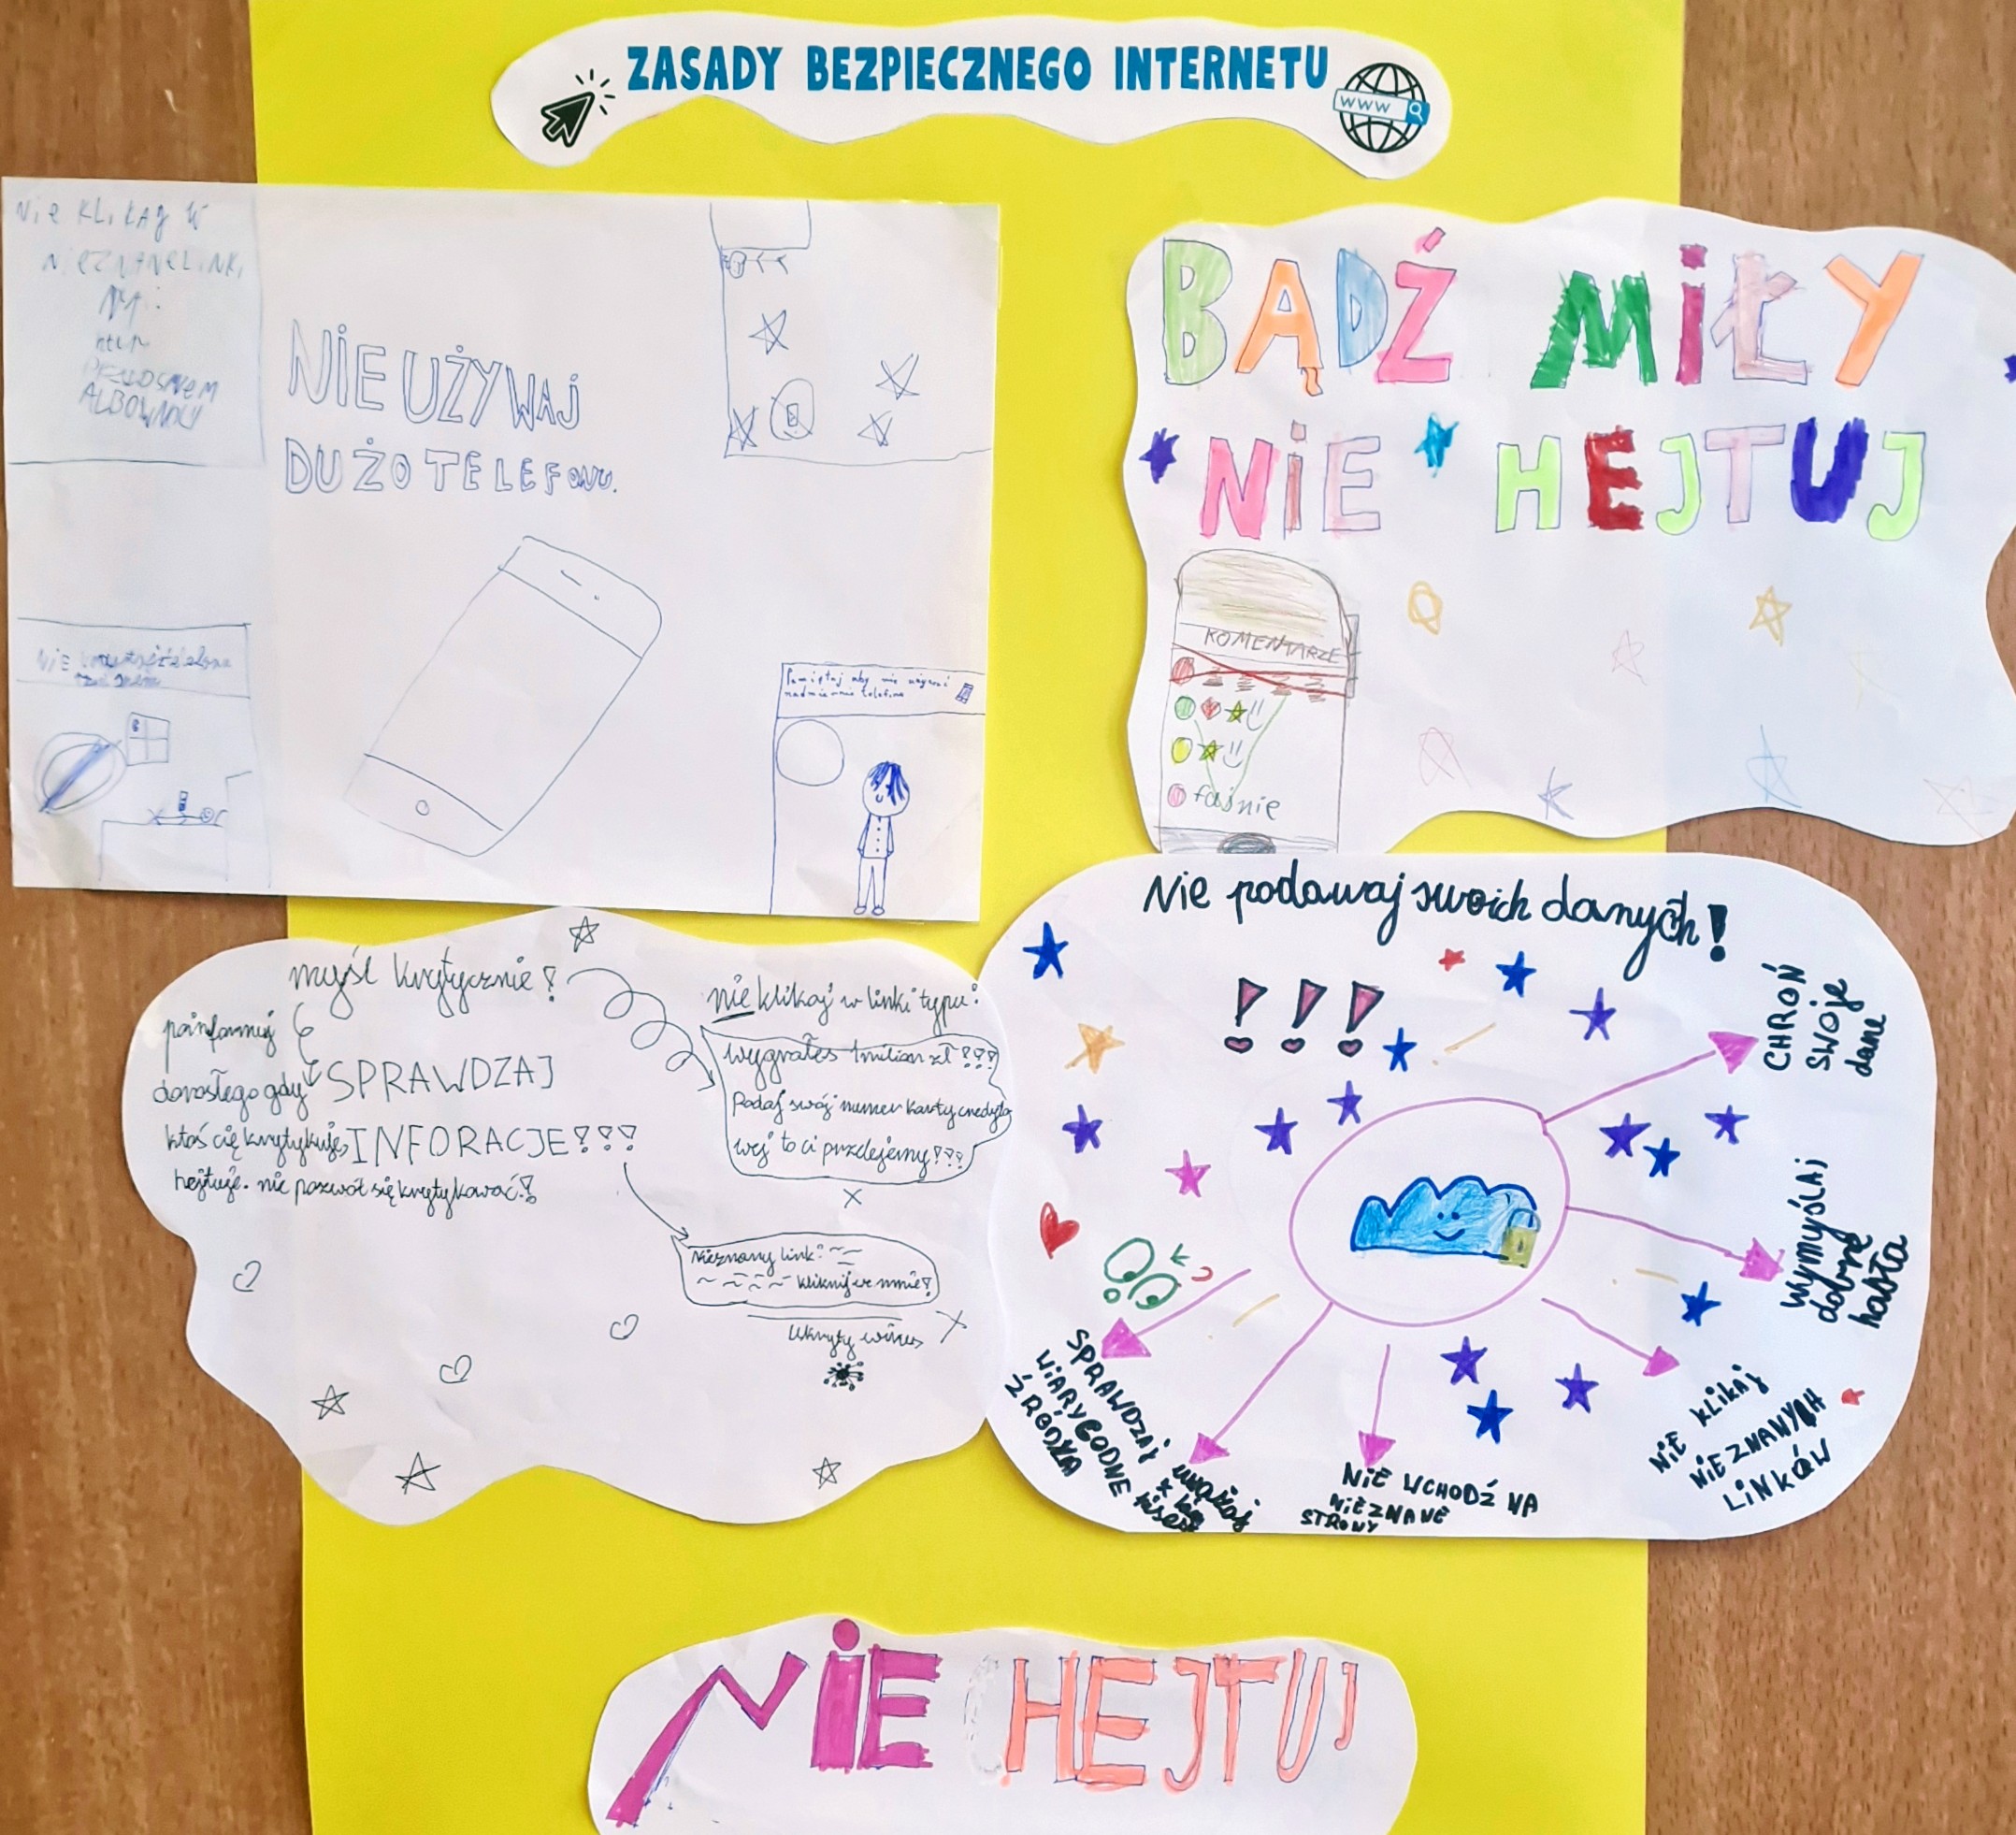 ZASADY BEZPIECZNEGO INTERNETU
WWW
Nie KLIKAJ W
NIEZNANE LINKI
Np:
NIE UŻYWAJ
DUŻO TELEFONU.
Pamiętaj aby nie używać
nadmiernie telefonu
NIE
BĄDŹ MIŁY
NIE HEJTUJ
KOMENTARZE
fajnie
myśl krytycznie!
poinformuj
dorosłego gdy
ktoś cię krytykuje,
hejtuje. nie pozwól się krytykować!
SPRAWDZAJ
INFORACJE!!!
nie klikaj w linki typu:
wygrałeś 1milion zł!!!
Podaj swój numer karty kredyto
wej to ci przelejemy!!!
X
Nieznany link:
kliknij we mnie!
X
Ukryty wirus
Nie podawaj swoich danych!
!!!
CHROŃ
SWOJE
dane
WYMYŚLAJ
dobre
hasła
NiE kLikaj
NiEZNANYCH
LiNkÓW
NiE WCHODŹ NA
NiEZNANE
STRONY
uważaj
SPRAWDZAJ
WiARYGODNE
ŹRÓDŁA
NiE HEJTUJ